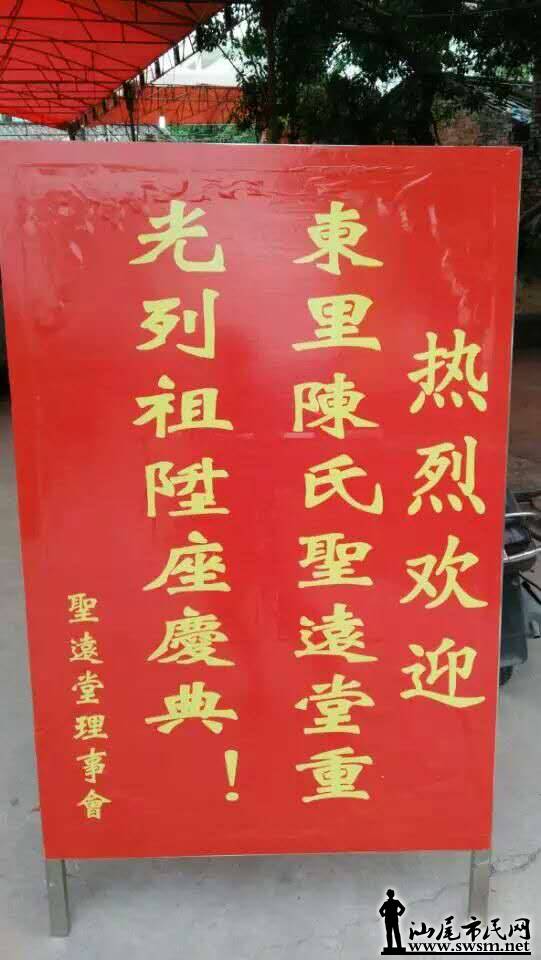 热烈欢迎
東里陳氏聖遠堂重
光列祖陞座慶典！
聖遠堂理事會
汕尾市民网
www.swsm.net